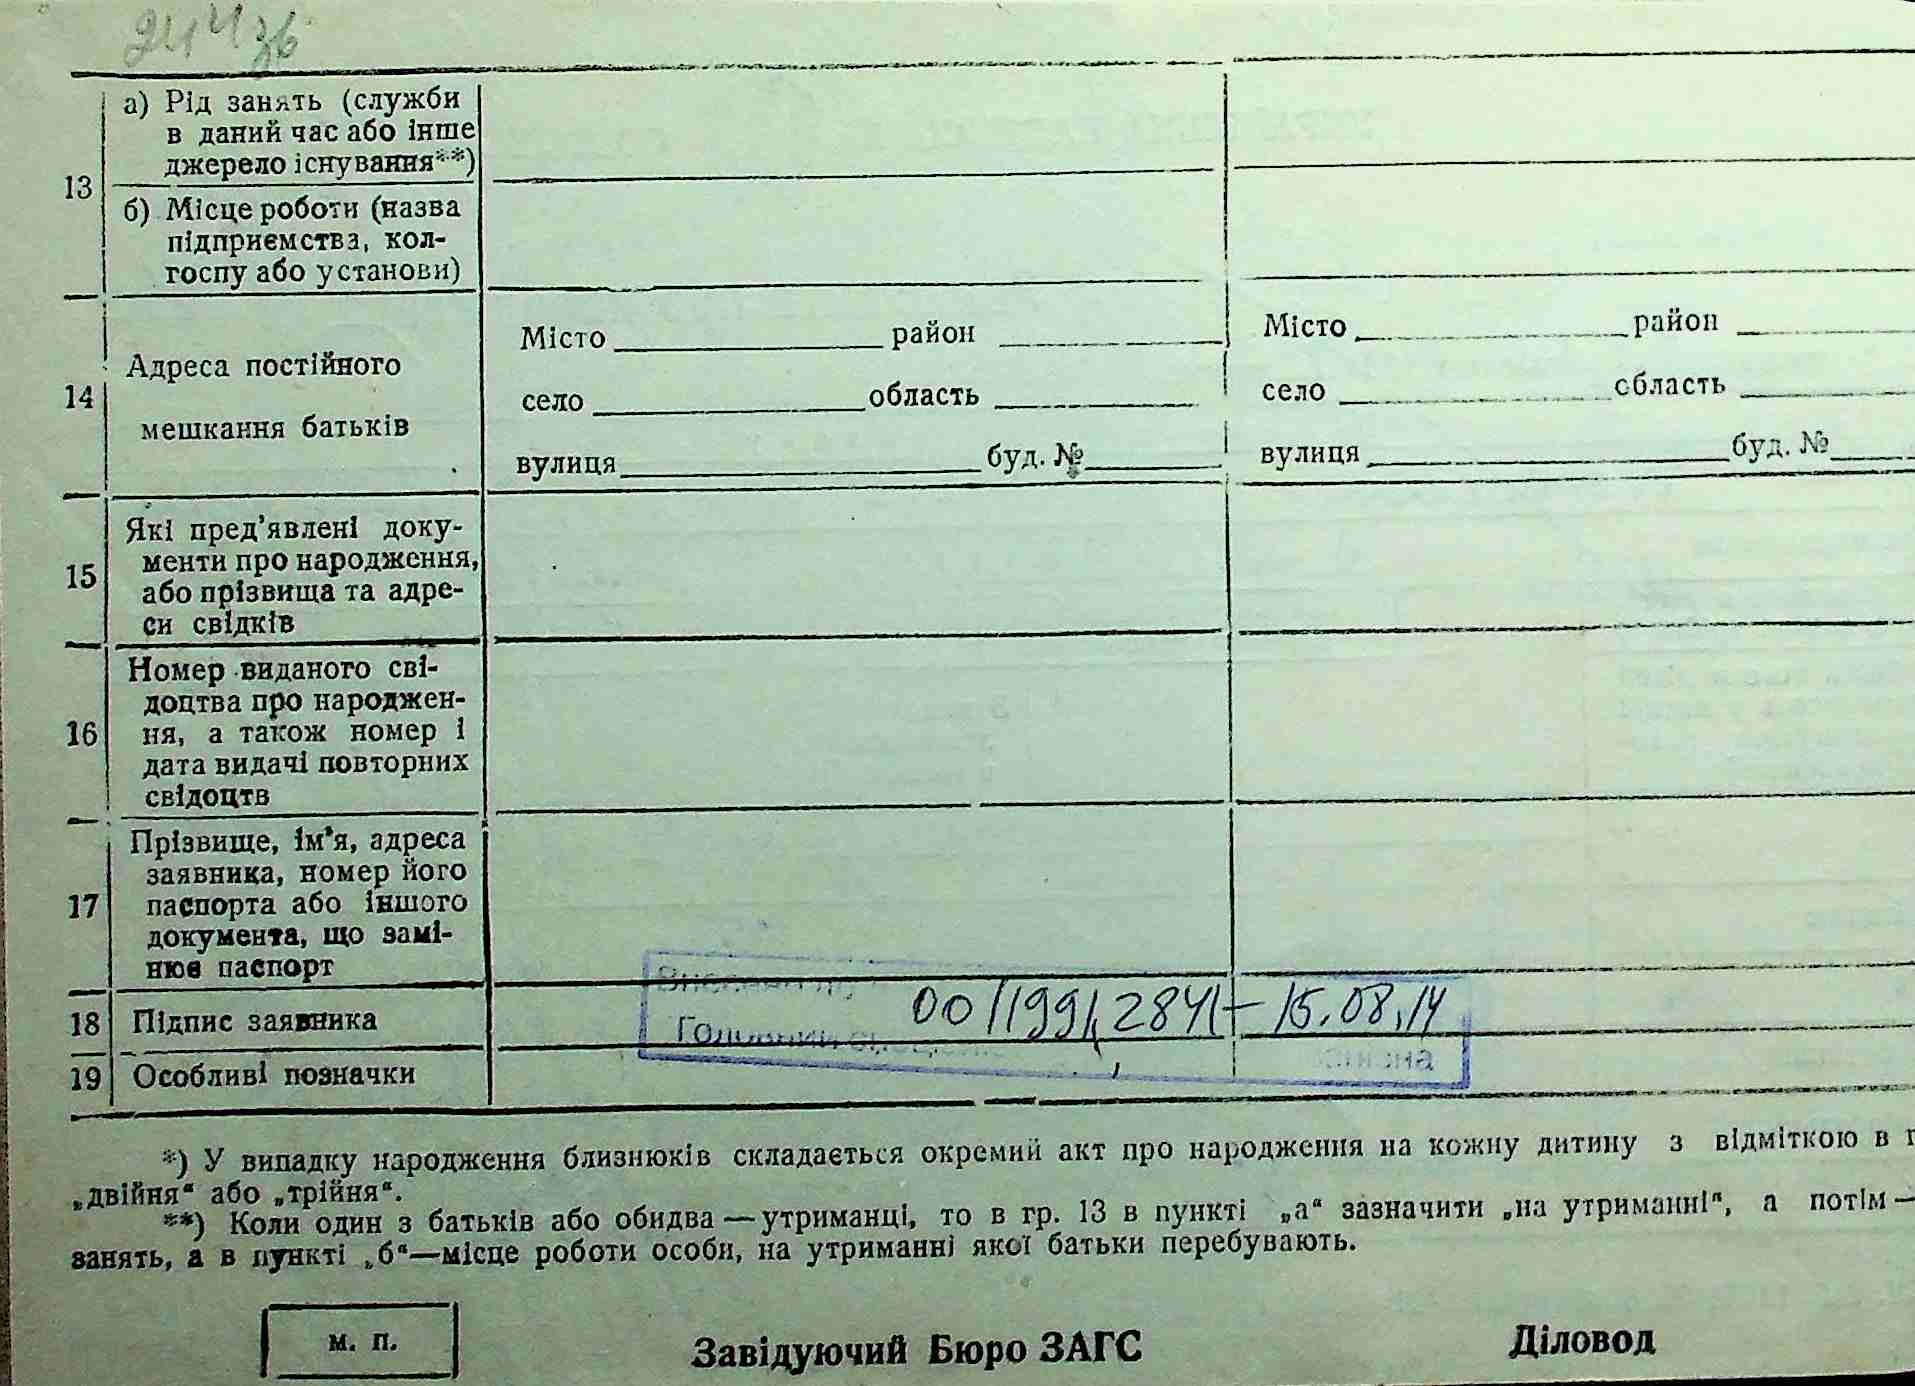 244 зв
13
а) Рід занять (служби
в даний час або інше
джерело існування**)
б) Місце роботи (назва
підприємства, кол-
госпу або установи)
14
Адреса постійного
мешкання батьків
Місто район
село область
вулиця буд. №
Місто район
село область
вулиця буд. №
15
Які пред’явлені доку-
менти про народження,
або прізвища та адре-
си свідків
16
Номер виданого сві-
доцтва про народжен-
ня, а також номер і
дата видачі повторних
свідоцтв
17
Прізвище, ім’я, адреса
заявника, номер його
паспорта або іншого
документа, що замі-
нює паспорт
18
Підпис заявника
15.08.14
19
Особливі позначки
*) У випадку народження близнюків складається окремий акт про народження на кожну дитину з відміткою в
„двійня“ або „трійня“.
**) Коли один з батьків або обидва — утриманці, то в гр. 13 в пункті „а“ зазначити „на утриманні“, а потім —
занять, а в пункті „б“—місце роботи особи, на утриманні якої батьки перебувають.
м. п.
Завідуючий Бюро ЗАГС
Діловод